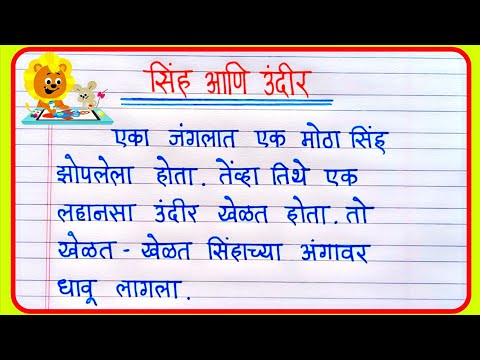 सिंह आणि उंदीर
एका जंगलात एक मोठा सिंह
झोपलेला होता. तेंव्हा तिथे एक
लहानसा उंदीर खेळत होता. तो
खेळत - खेळत सिंहाच्या अंगावर
धावू लागला.